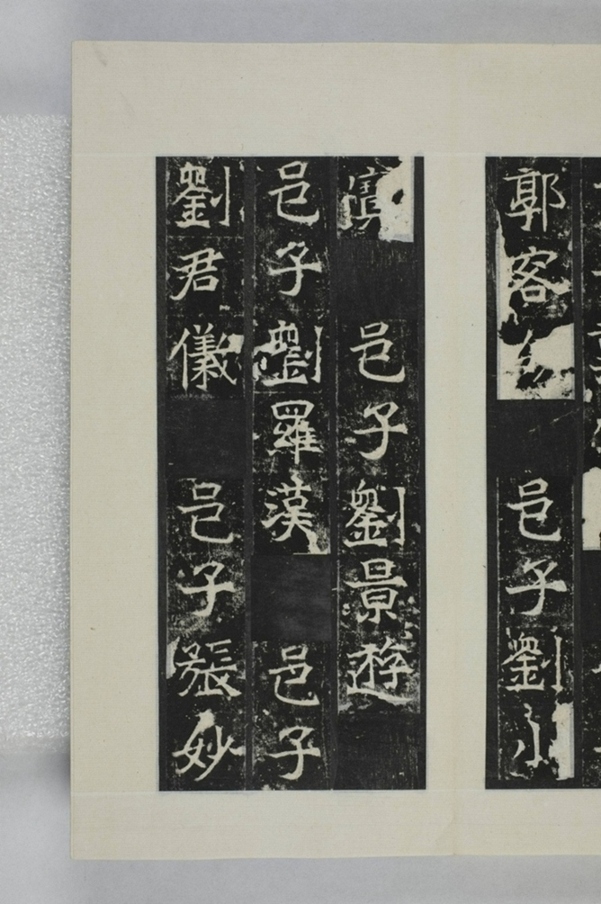 郭客
邑子劉小
邑子劉景遊
邑子劉羅漢
邑子
劉君儀
邑子張妙